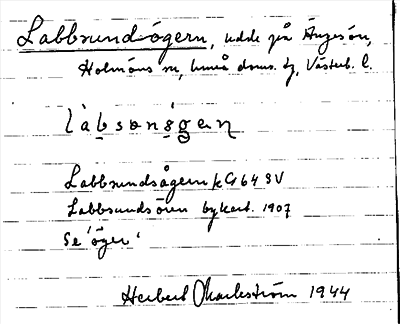 Labbsundögern, udde på Ängesön,
Holmöns sn, Umeå doms. tg, Västerb. l.
làbsɵnǿgɐɳ
Labbsundsågern kG 64 SV
Labbsundsören bykart. 1907
Se 'öger'
Herbert Markström 1944